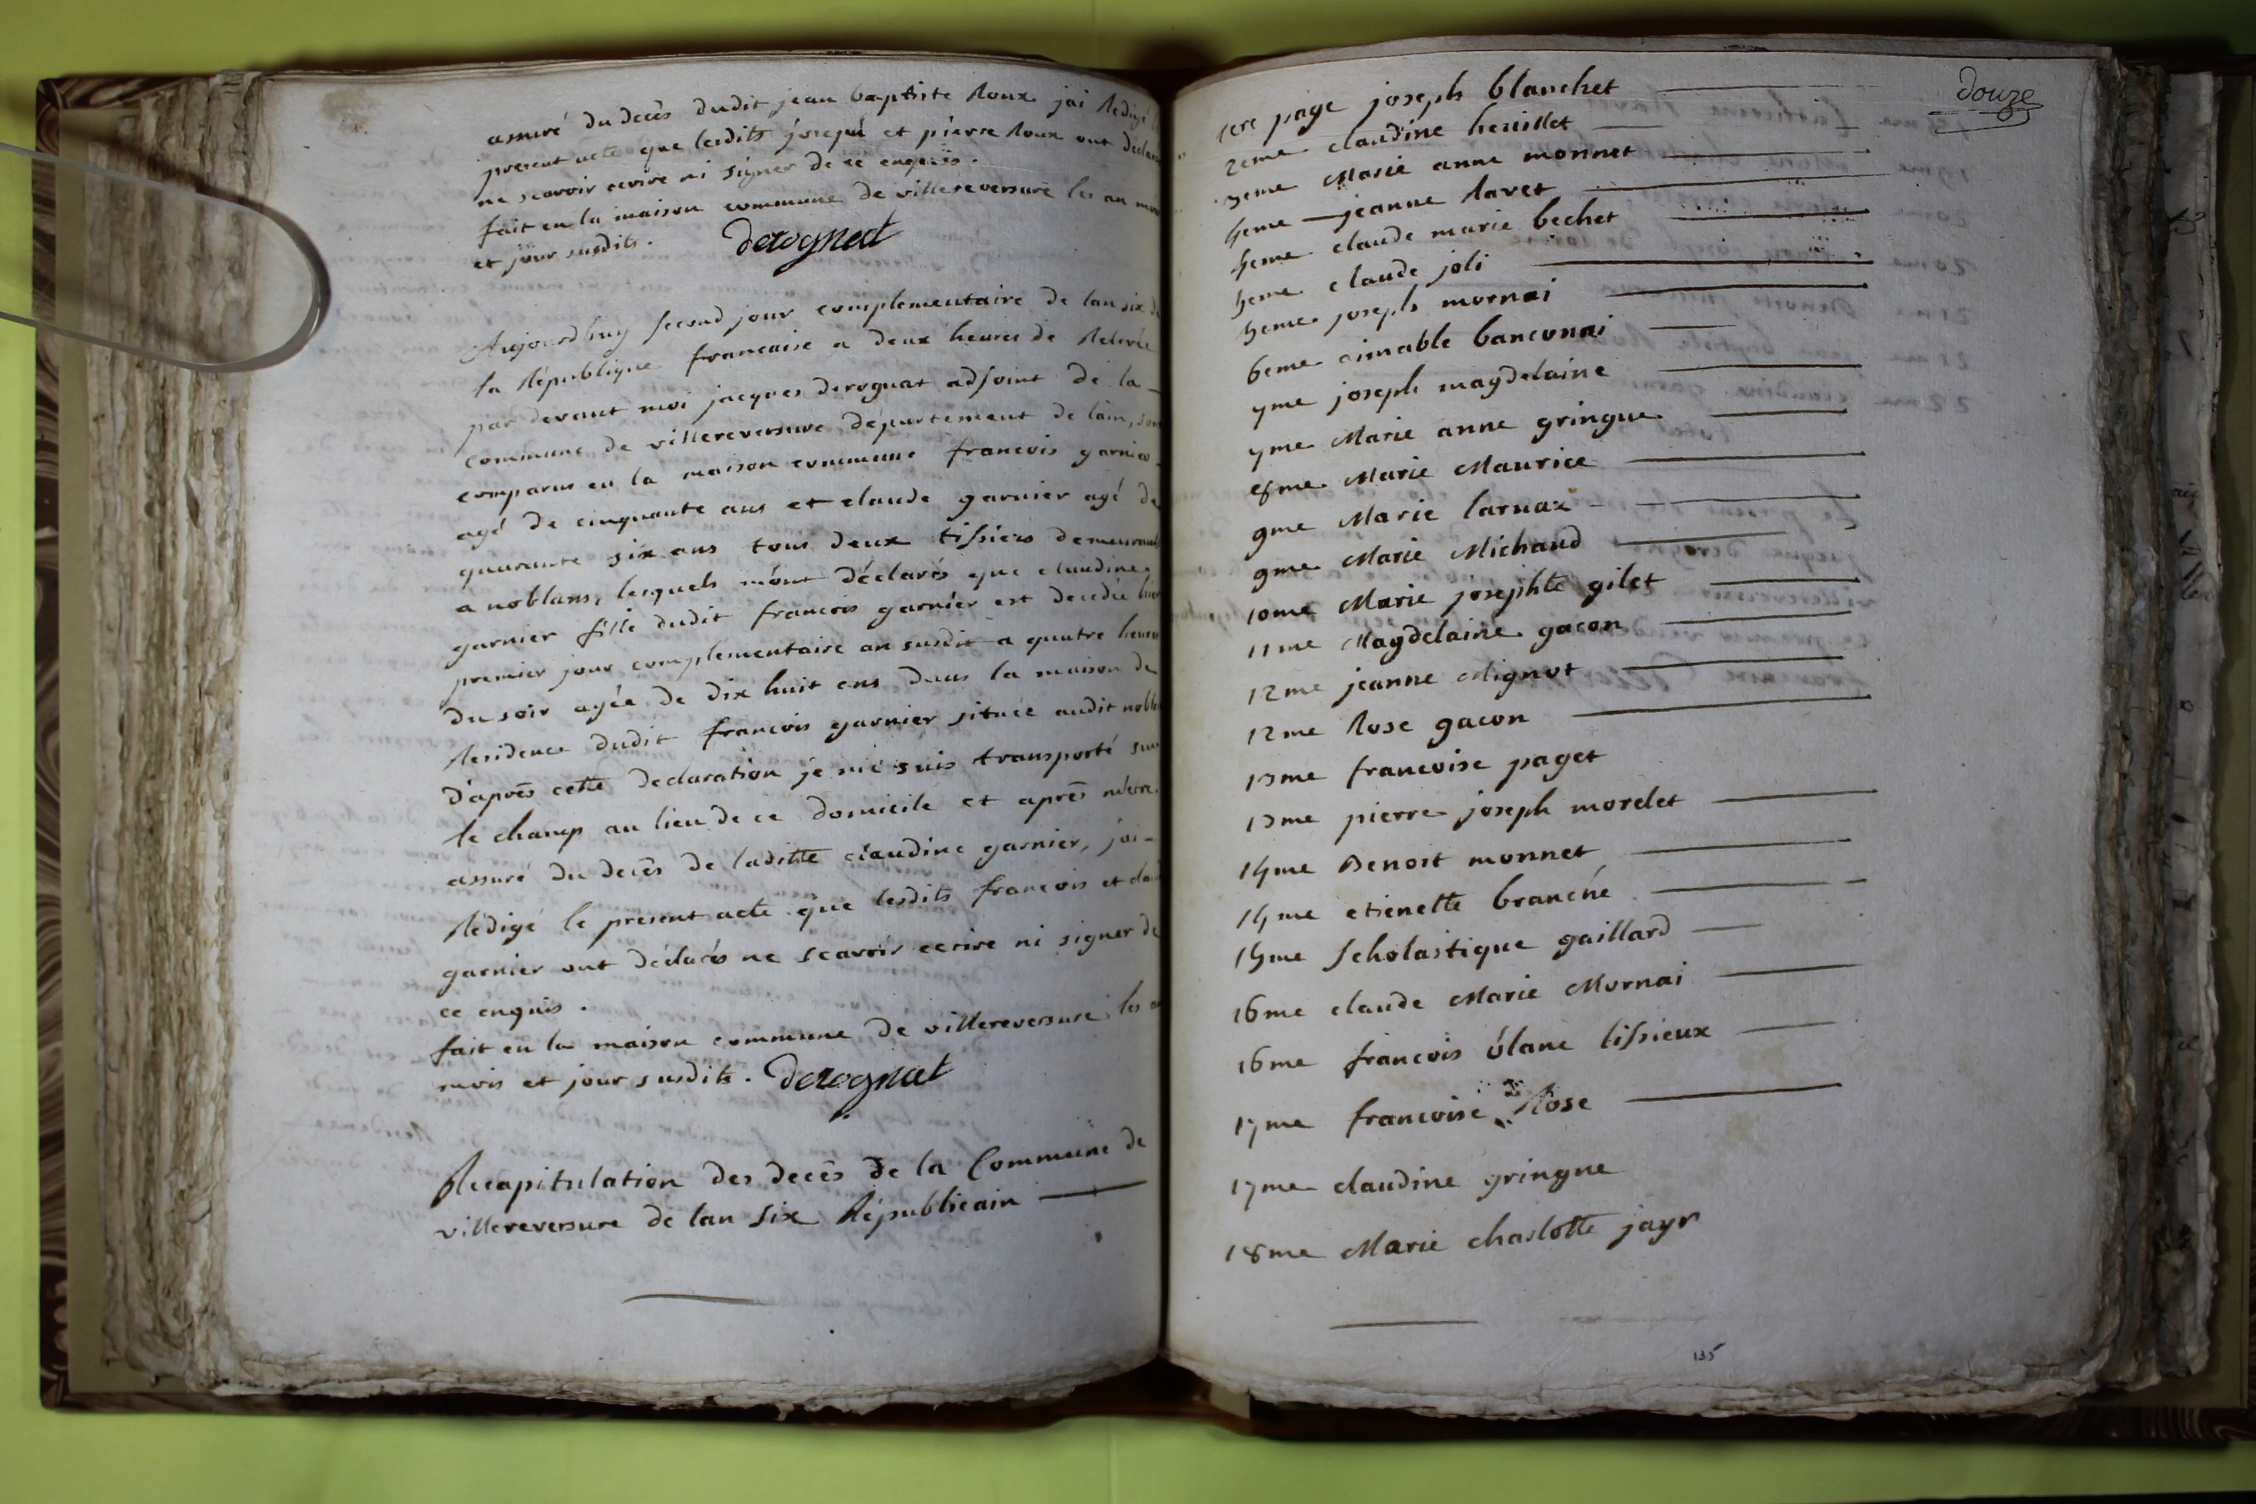 assuré du decès dudit jean baptiste Roux jai Redigé
present acte que lesdits joseph et pierre Roux ont declaré
ne scavoir ecrire ni signer de ce enquis.
fait en la maison commune de villereversure les an mois
et jour susdits. derognat
Aujourdhuy second jour complementaire de lan six de
la République francaise a deux heures de Relevée
par devant moi jacques derognat adjoint de la
commune de villereversure département de lain, sont
comparus en la maison commune francois garnier
agé de cinquante ans et claude garnier agé de
quarante six ans tous deux tissiers demeurant
a noblans, lesquels m'ont déclarés que claudine
garnier fille dudit francois garnier est decedée hier
premier jour complementaire an susdit a quatre heures
du soir agée de dix huit ans dans la maison de
Residence dudit francois garnier située audit noblans
d'après cette declaration je me suis transporté sur
le champ au lieu de ce domicile et après m'etre
assuré du decès de laditte claudine garnier, jai
Rédigé le present acte que lesdits francois et claude
garnier ont déclarés ne scavoir ecrire ni signer de
ce enquis.
fait en la maison commune de villereversure les an
mois et jour susdits. derognat
Recapitulation des decès de la Commune de
villereversure de lan six Républicain
douze
1ere page joseph blanchet
2eme claudine heuillet
3eme Marie anne monnet
4eme jeanne Ravet
5eme claude marie bechet
5eme claude joli
5eme joseph mornai
6eme aimable banconai
7me joseph magdelaine
7me Marie anne gringue
8me Marie Maurice
9me Marie larnaz
9me Marie Michaud
10me Marie josephte gilet
11me Magdelaine gacon
12me jeanne Mignot
12me Rose gacon
13me francoise paget
13me pierre joseph morelet
14me Benoit monnet
14me etienette branché
15me Scholastique gaillard
16me claude Marie Mornai
16me francois
17me francoise Rose
17me claudine gringue
18me Marie charlotte jayr
135